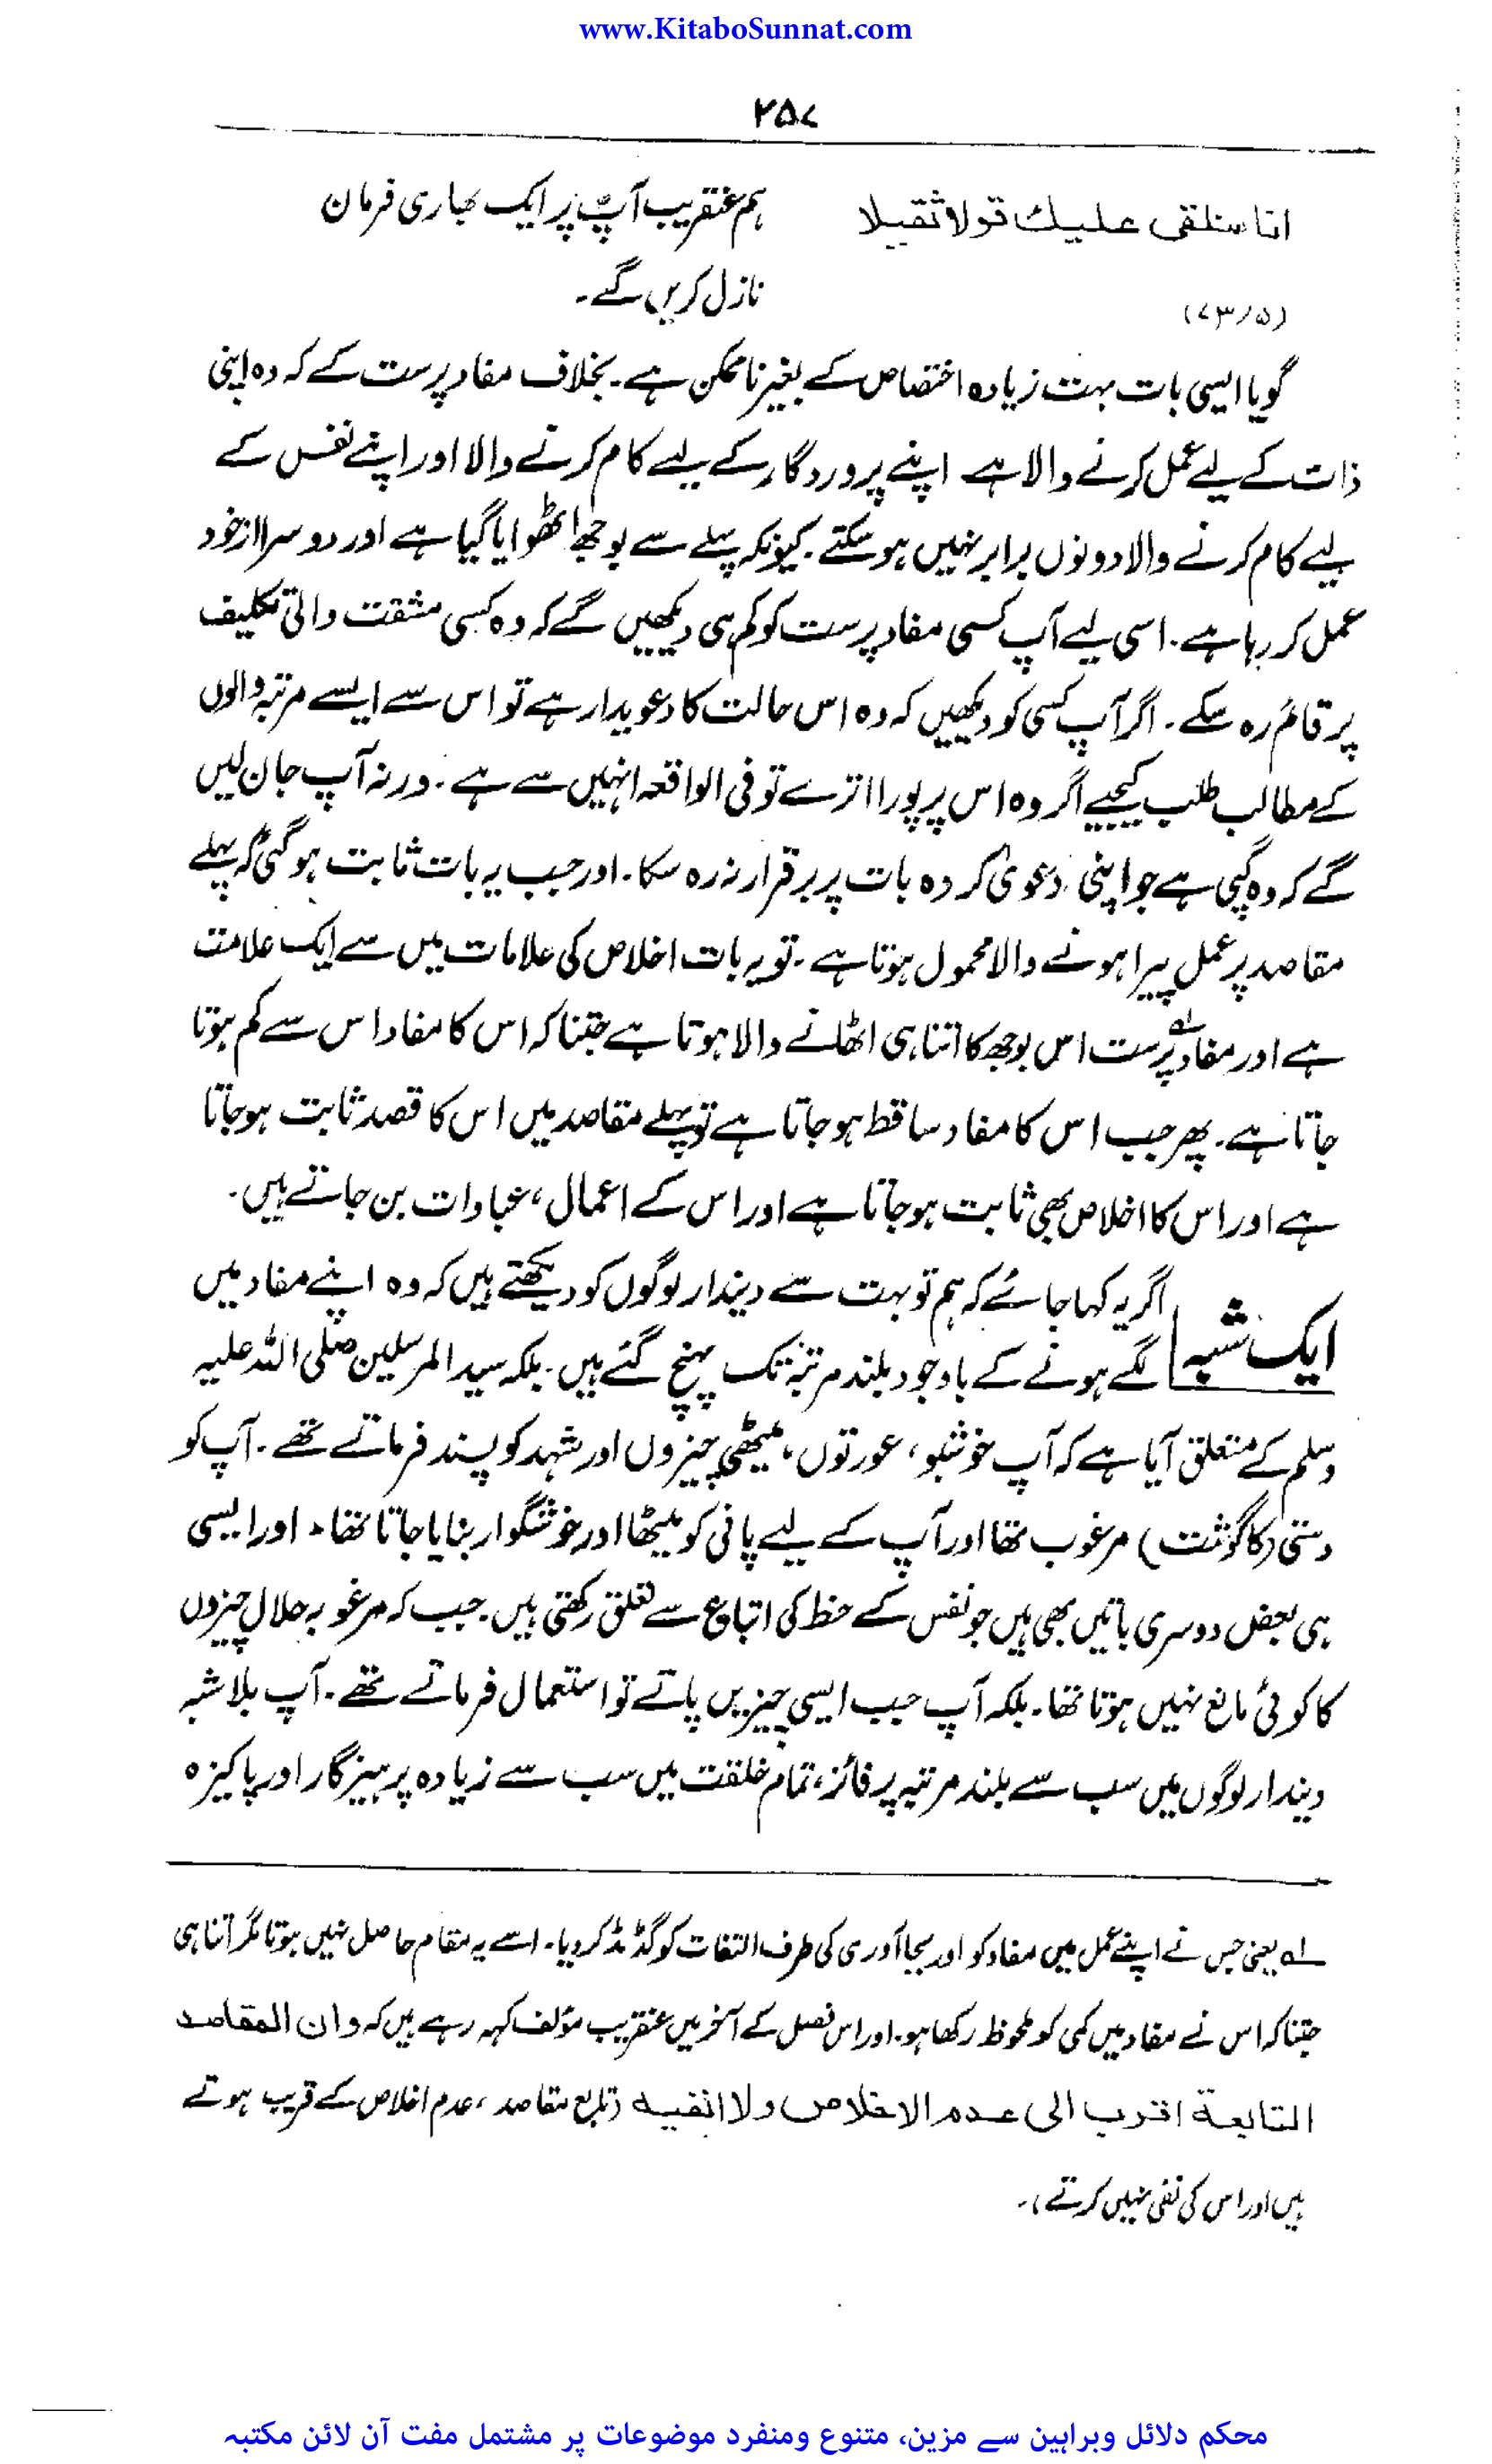 www.KitaboSunnat.com
۲۵۷
انا سنلقی علیك قولا ثقیلا
ہم عنقریب آپؐ پر ایک بھاری فرمان
(۷۳/۵)
نازل کریں گے۔
گویا ایسی بات بہت زیادہ اختصاص کے بغیر ناممکن ہے۔ بخلاف مفاد پرست کے کہ وہ اپنی
ذات کے لیے عمل کرنے والا ہے اپنے پروردگار کے لیے کام کرنے والا اور اپنے نفس کے
لیے کام کرنے والا دونوں برابر نہیں ہو سکتے۔ کیونکہ پہلے سے بوجھ اٹھوایا گیا ہے اور دوسرا ازخود
عمل کر رہا ہے۔ اسی لیے آپ کسی مفاد پرست کو کم ہی دیکھیں گے کہ وہ کسی مشقت والی تکلیف
پر قائم رہ سکے۔ اگر آپ کسی کو دیکھیں کہ وہ اس حالت کا دعویدار ہے تو اس سے ایسے مرتبہ والوں
کے مطالب طلب کیجیے اگر وہ اس پر پورا اترے تو فی الواقعہ انہیں سے ہے۔ ورنہ آپ جان لیں
گے کہ وہ گپی ہے جو اپنی دعویٰ کردہ بات پر برقرار نہ رہ سکا۔ اور جب یہ بات ثابت ہو گئی کہ پہلے
مقاصد پر عمل پیرا ہونے والا محمول ہوتا ہے۔ تو یہ بات اخلاص کی علامات میں سے ایک علامت
ہے اور مفاد پرست لہ اس بوجھ کا اتنا ہی اٹھانے والا ہوتا ہے جتنا کہ اس کا مفاد اس سے کم ہوتا
جاتا ہے۔ پھر جب اس کا مفاد ساقط ہو جاتا ہے تو پہلے مقاصد میں اس کا قصد ثابت ہو جاتا
ہے اور اس کا اخلاص بھی ثابت ہو جاتا ہے اور اس کے اعمال، عبادات بن جاتے ہیں۔
ایک شبہ
اگر یہ کہا جائے کہ ہم تو بہت سے دیندار لوگوں کو دیکھتے ہیں کہ وہ اپنے مفاد میں
لگے ہونے کے باوجود بلند مرتبہ تک پہنچ گئے ہیں۔ بلکہ سید المرسلین صلی اللہ علیہ
وسلم کے متعلق آیا ہے کہ آپ خوشبو، عورتوں، میٹھی چیزوں اور شہد کو پسند فرماتے تھے۔ آپ کو
دستی (کا گوشت) مرغوب تھا اور آپ کے لیے پانی کو میٹھا اور خوشگوار بنایا جاتا تھا۔ اور ایسی
ہی بعض دوسری باتیں بھی ہیں جو نفس کے حظ کی اتباع سے تعلق رکھتی ہیں۔ جب کہ مرغوبہ حلال چیزوں
کا کوئی مانع نہیں ہوتا تھا۔ بلکہ آپ جب ایسی چیزیں پاتے تو استعمال فرماتے تھے۔ آپ بلاشبہ
دیندار لوگوں میں سب سے بلند مرتبہ پر فائز، تمام خلقت میں سب سے زیادہ پرہیزگار اور پاکیزہ
لہ یعنی جس نے اپنے عمل میں مفاد کو اور بجا آوری کی طرف التفات کو گڈمڈ کر دیا۔ اسے یہ مقام حاصل نہیں ہوتا مگر اتنا ہی
جتنا کہ اس نے مفاد میں کمی کو ملحوظ رکھا ہو۔ اور اس فصل کے آخر میں عنقریب مؤلف کہہ رہے ہیں کہ وان المقاصد
التابعة اقرب الی عدم الاخلاص ولا انفیه (تابع مقاصد، عدم اخلاص کے قریب ہوتے
ہیں اور اس کی نفی نہیں کرتے)۔
محکم دلائل وبراہین سے مزین، متنوع ومنفرد موضوعات پر مشتمل مفت آن لائن مکتبہ